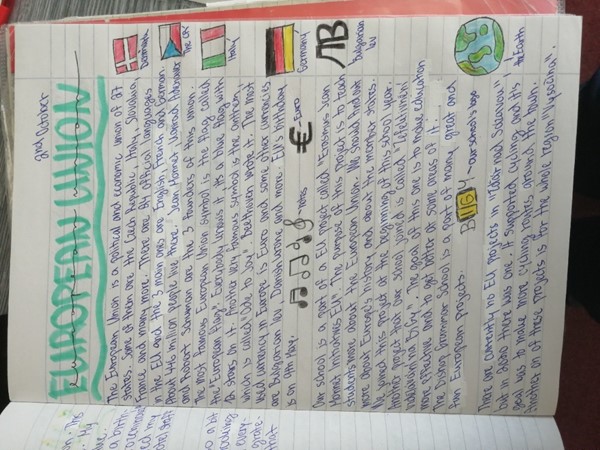 2nd October
EUROPEAN UNION
The European Union is a political and economic union of 27
states. Some of them are the Czech Republic, Italy, Slovakia,
France and many more. There are 24 official languages
in the EU and the 3 main ones are English, French, and German.
About 446 million people live there. Jean Monnet, Konrad Adenauer
and Robert Schuman are the 3 founders of this union.
The most famous European Union symbol is the flag called
the "European Flag". Everybody knows it. It's a blue flag with
12 stars on it. Another very famous symbol is the anthem,
which is called "Ode to Joy". Beethoven wrote it. The most
used currency in Europe is Euro and some other currencies
are Bulgarian lev, Danish krone and more. EU's birthday
is on 9th May.
Denmark
The CR
Italy
Germany
Bulgarian
lev
Euro
notes
Our school is a part of a EU project called "Erasmus Jean
Monet Initiatives EU". The purpose of this project is to teach
students more about the European Union. We should find out
more about Europe's history and about the member states.
We joined this project at the beginning of this school year.
Another project that our school joined is called
The goal of this one is to make education
more effective and to get better at some areas of it.
The Bishop Grammar School is a part of many great and
fun European projects.
BIGY - our school's logo
There are currently no EU projects in "Žďár nad Sázavou",
but in there was one. It supported cycling and it's
goal was to make more cycling routes around the town.
Another one of these projects is for the whole region "Vysočina".
Earth